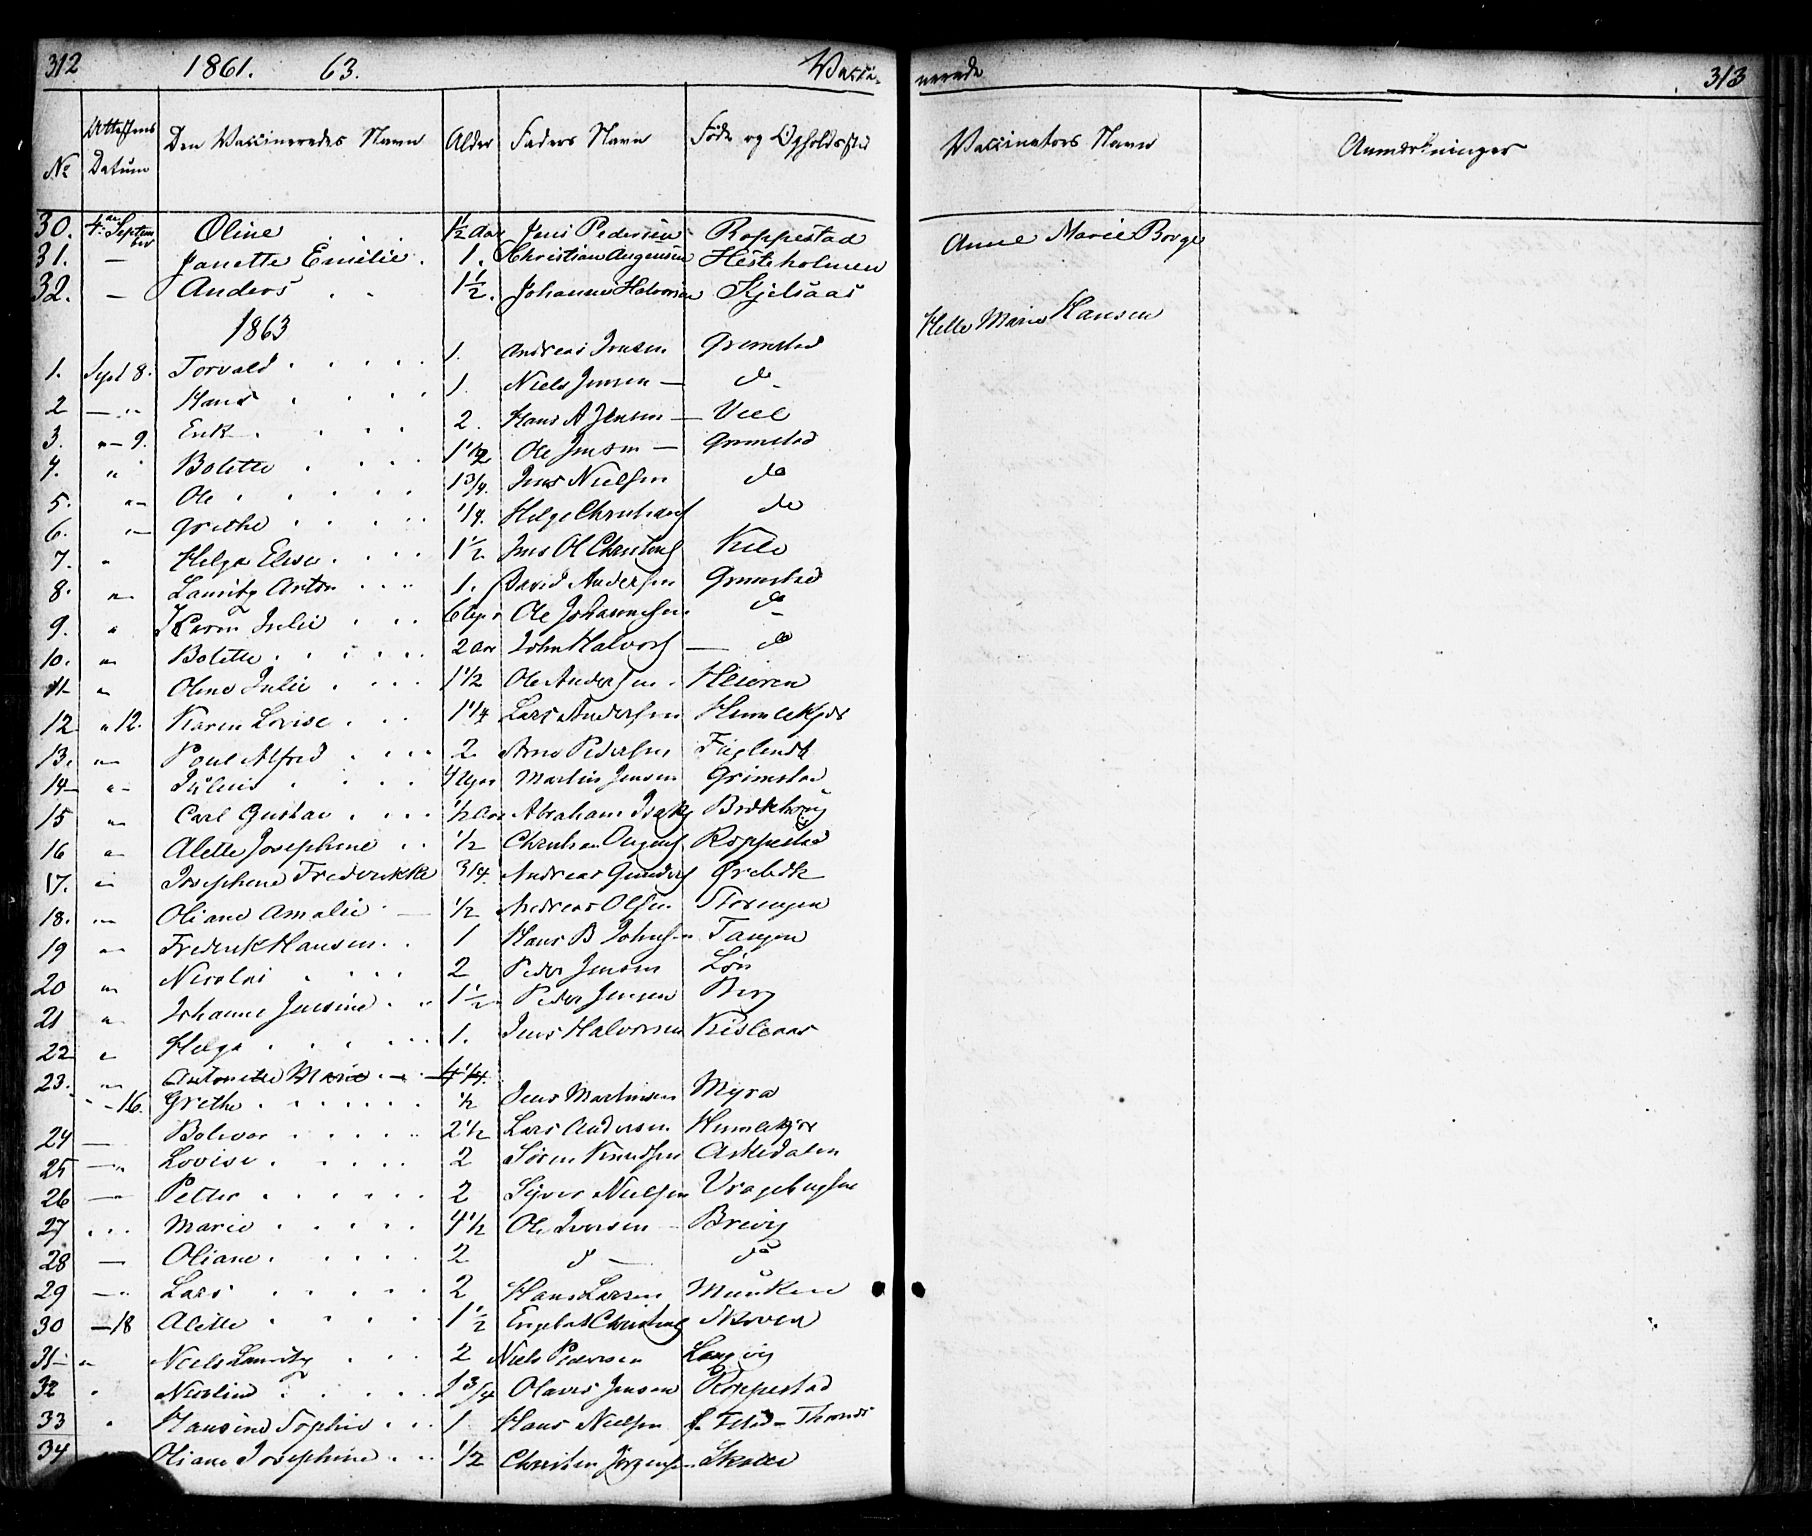 312 1861. 63. Vacci-
nerede 313
No Attestens Datum Den Vaccineredes Navn Alder Faders Navn Føde og Opholdssted Vaccinators Navn Anmærkninger
30. 4de September Oline 1½ Aar Jens Pedersen Roppestad Anne Marie Borge
31. — Janette Emilie 1. Christian Augensen Hesteholmen
32. — Anders 1½. Johannes Halvorsen Kjelsaas
1863 Helle Marie Hansen
1. Sept 8. Torvald 1. Andreas Jensen Grimstad
2 — " Hans 1. Niels Jensen — do
3. " — 9. Erik 2. Hans A Jensen — Veel
4. " Bolette 1½ Ole Jensen — Grimstad
5. " Ole 1¾. Jens Nielsen do
6. " Grethe ¼. Helge Christians do
7. " Helga Elise 1½ Jens Ol Christens
8. " Lauritz Anton 1. David Andersen Grimstad
9. " Karen Julie 6 Uger Ole Johannesen do
10. " Bolette 2 Aar John Halvors — do
11 " Oline Julie 1½ Ole Andersen Heieren
12 " 12. Karen Lovise 1¼ Lars Andersen Humlekjær
13. " Poul Alfred 2 Arne Pedersen
14 " Julius 4 Uger Martin Jensen Grimstad
15 " Carl Gustav ½ Aar Abraham Isaks
16 " Alette Josephine ½ Christian Augens Roppestad
17. " Josephine Frederikke ¾. Andreas Gunders Ørebek
18. " Oliane Amalie ½ Andreas Olsen Storengen
19 " Frederik Hansen 1 Hans B Johnsen Tangen
20 " Nicolai 2 Peder Jensen
21 " Johanne Jensine 1½ Peder Jensen Berg
22 " Helga 1. Jens Halvorsen
23. " Antonette Marie 4¼.
" — 16. Grethe ½ Jens Martinsen Myra
24 — Bolevar 2½ Lars Andersen Humlekjær
25 — " Lovise 2 Søren Knudsen Askedalen
26 — " Petter 2 Syver Nielsen
27 " Marie 4½ Ole Iversen Brevig
28 — Oliane 2 do — do
29 — " Lars 2 Hans Larsen Munken
30 — 18 Alette 1½ Engebret Christens Skoven
31 — " Niels Lauritz 2 Niels Pedersen Langvig
32 " Nicoline 1¾ Olaves Jensen Roppestad
33 " Hansine Sophie 1 Hans Nielsen
34 Oliane Josephine ½ Christen Jørgensen